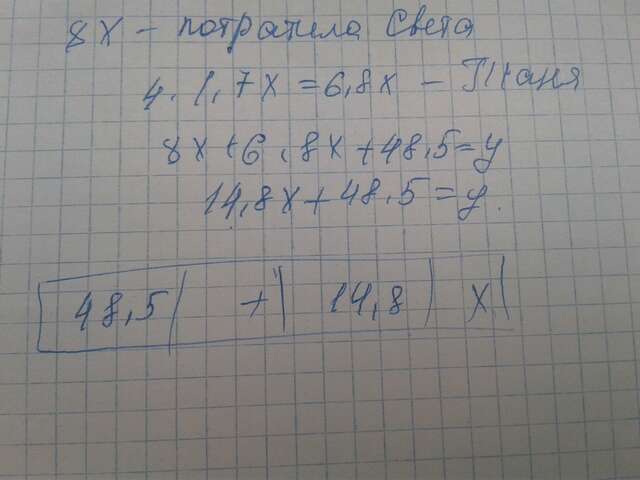 8х – потратила Света
4 . 1,7х = 6,8х – Таня
8х + 6,8х + 48,5 = y
14,8х + 48,5 = y.
48,5 | + | 14,8 | х |